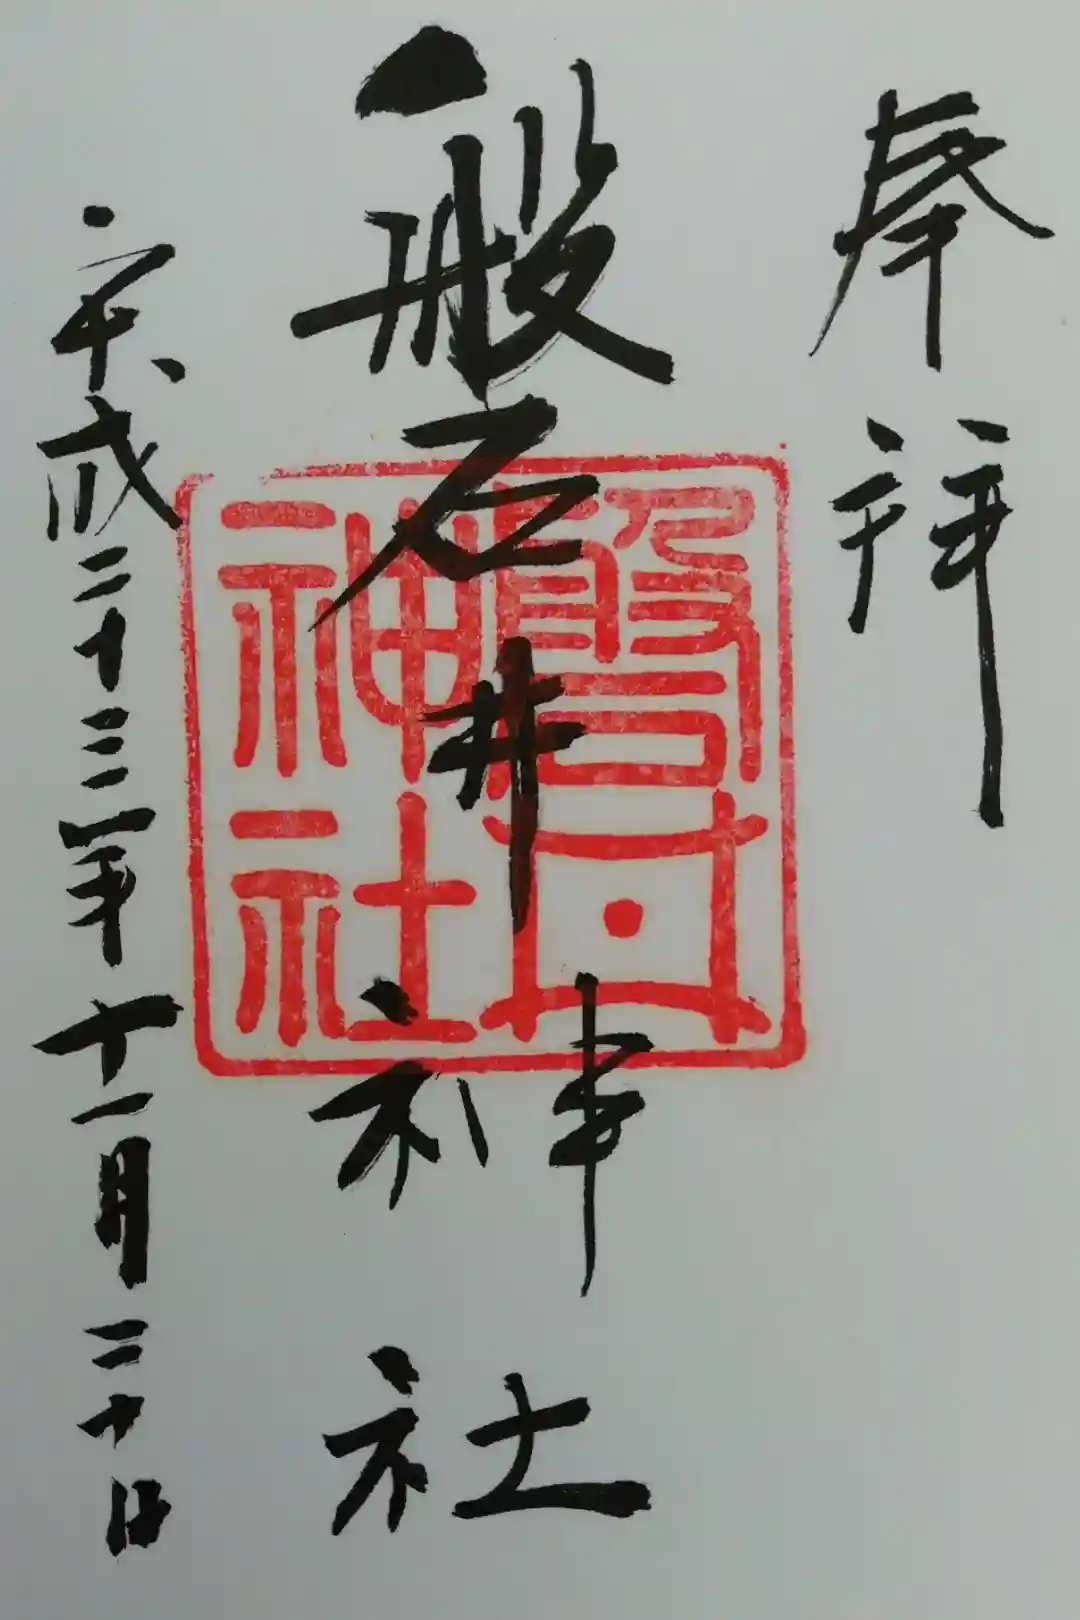 奉拝
磐井神社
平成二十三年十一月二十日
磐井
神社